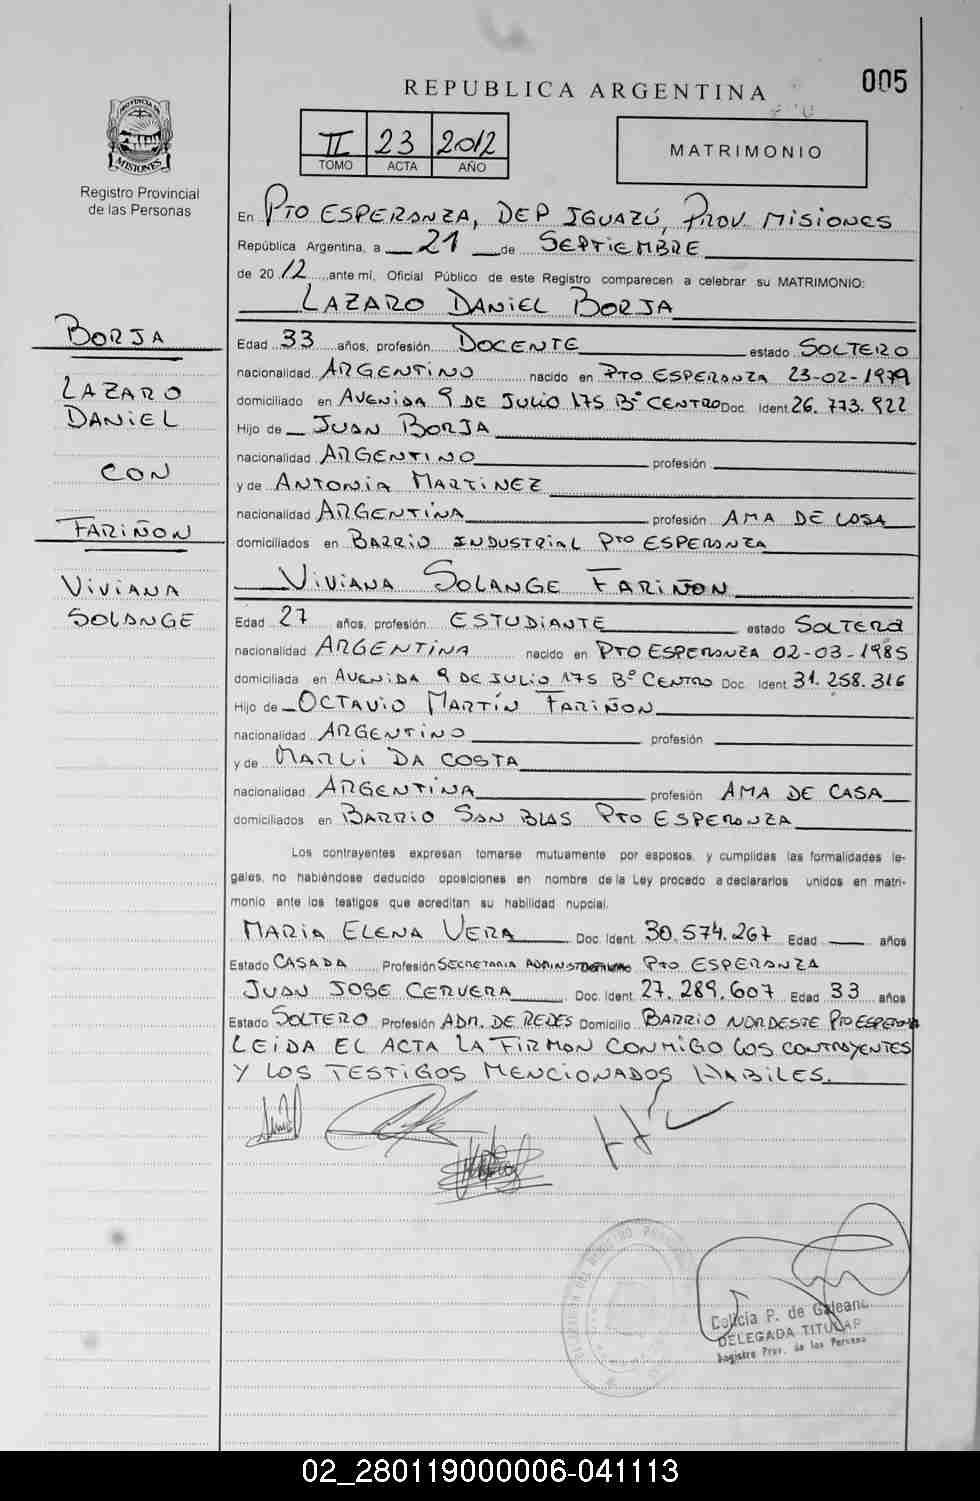 005
REPUBLICA ARGENTINA
PROVINCIA DE
MISIONES
Registro Provincial
de las Personas
II 23 2012
TOMO ACTA AÑO
MATRIMONIO
En PTO ESPERANZA, DEP IGUAZÚ, PROV. MISIONES
República Argentina, a 21 de SEPTIEMBRE
de 2012 ante mí, Oficial Público de este Registro comparecen a celebrar su MATRIMONIO:
LAZARO DANIEL BORJA
Edad 33 años, profesión DOCENTE estado SOLTERO
nacionalidad ARGENTINO nacido en PTO ESPERANZA 23-02-1979
domiciliado en AVENIDA 9 DE JULIO 175 Bº CENTRO Doc. Ident. 26.773.922
Hijo de JUAN BORJA
nacionalidad ARGENTINO profesión
y de ANTONIA MARTINEZ
nacionalidad ARGENTINA profesión AMA DE COSA
domiciliados en BARRIO INDUSTRIAL PTO ESPERANZA
VIVIANA SOLANGE FARIÑON
Edad 27 años, profesión ESTUDIANTE estado SOLTERA
nacionalidad ARGENTINA nacido en PTO ESPERANZA 02-03-1985
domiciliada en AVENIDA 9 DE JULIO 175 Bº CENTRO Doc. Ident. 31.258.316
Hijo de OCTAVIO MARTÍN FARIÑON
nacionalidad ARGENTINO profesión
y de MARLI DA COSTA
nacionalidad ARGENTINA profesión AMA DE CASA
domiciliados en BARRIO SAN BLAS PTO ESPERANZA
Los contrayentes expresan tomarse mutuamente por esposos, y cumplidas las formalidades le-
gales, no habiéndose deducido oposiciones en nombre de la Ley procedo a declararlos unidos en matri-
monio ante los testigos que acreditan su habilidad nupcial.
MARIA ELENA VERA Doc. Ident. 30.574.267 Edad años
Estado CASADA Profesión SECRETARIA PTO ESPERANZA
JUAN JOSE CERVERA Doc. Ident. 27.289.607 Edad 33 años
Estado SOLTERO Profesión ADM. DE REDES Domicilio BARRIO NORDESTE PTO ESPERANZA
LEIDA EL ACTA LA FIRMAN CONMIGO LOS CONTRAYENTES
Y LOS TESTIGOS MENCIONADOS HABILES.
BORJA
LAZARO
DANIEL
CON
FARIÑON
VIVIANA
SOLANGE
P. de Galeano
DELEGADA TITULAR
Registro Prov. de las Personas
02_280119000006-041113